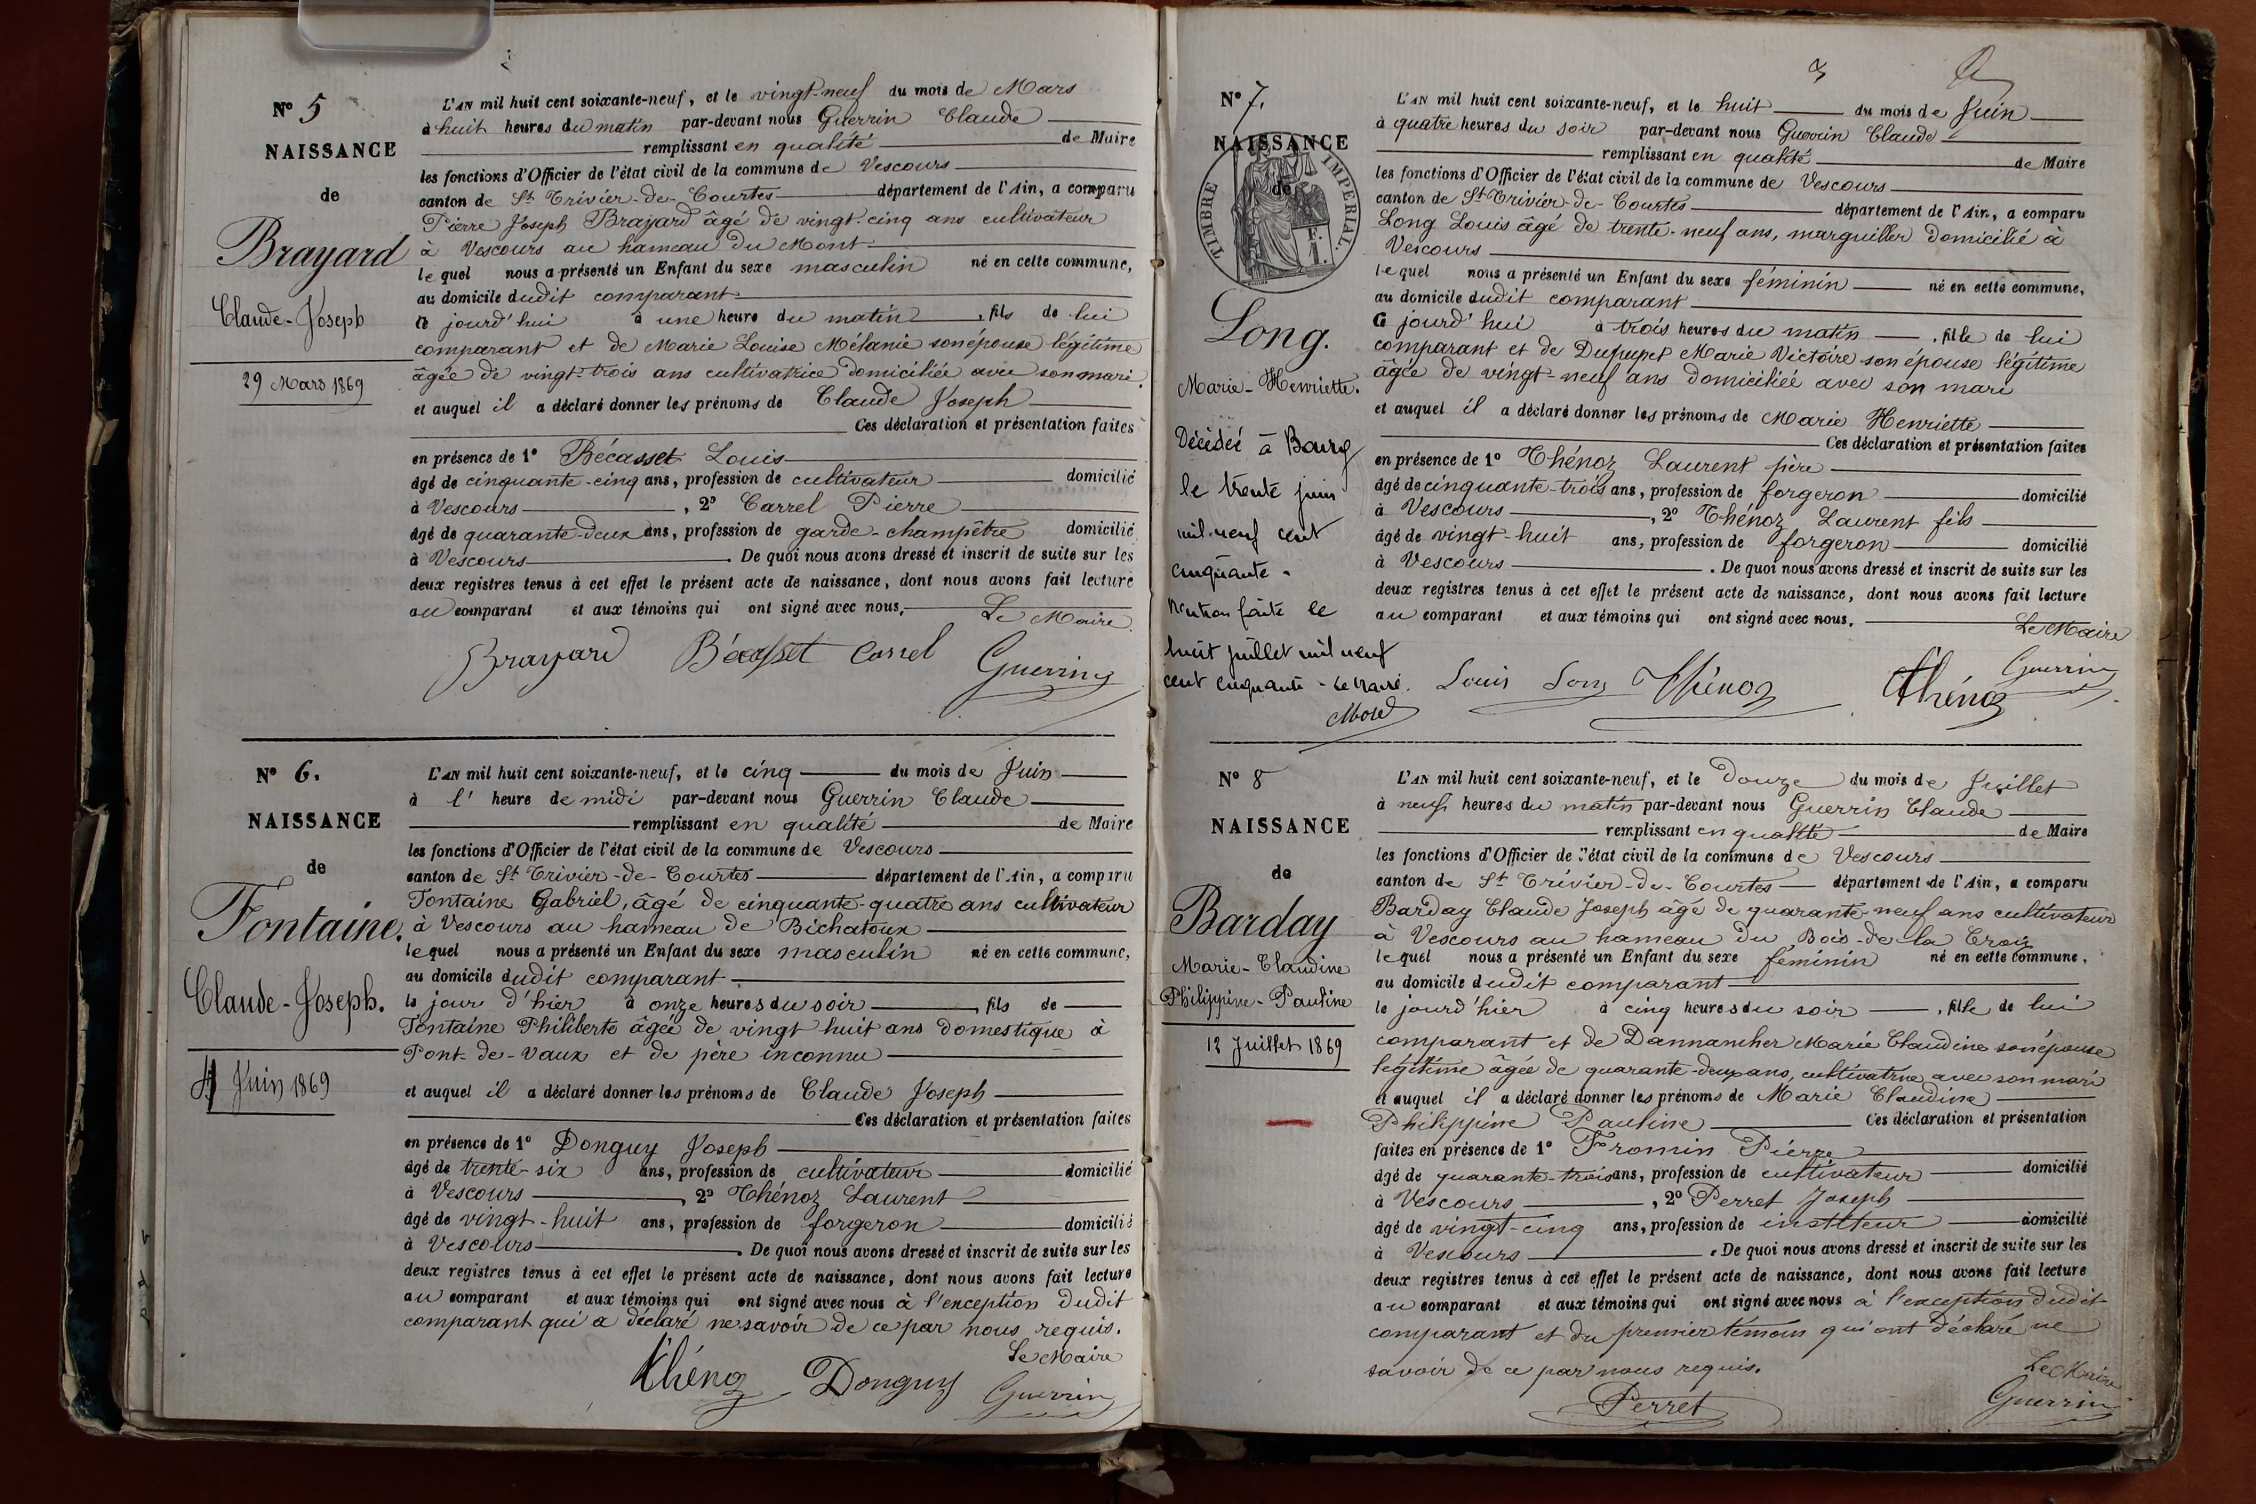 Nº 5
NAISSANCE
de
Brayard
Claude-Joseph
29 Mars 1869
L'AN mil huit cent soixante-neuf, et le vingt-neuf du mois de Mars
à huit heures du matin par-devant nous Guerrin Claude
remplissant en qualité de Maire
les fonctions d'Officier de l'état civil de la commune de Vescours
canton de St Trivier-de-Courtes département de l'Ain, a comparu
Pierre Joseph Brayard âgé de vingt-cinq ans cultivateur
à Vescours au hameau du Mont
lequel nous a présenté un Enfant du sexe masculin né en cette commune,
au domicile dudit comparant
ce jourd'hui à une heure du matin, fils de lui
comparant et de Marie Louise Mélanie son épouse légitime
âgée de vingt-trois ans cultivatrice domiciliée avec son mari.
et auquel il a déclaré donner les prénoms de Claude Joseph
Ces déclaration et présentation faites
en présence de 1º Bécasset Louis
âgé de cinquante-cinq ans, profession de cultivateur domicilié
à Vescours, 2º Carrel Pierre
âgé de quarante-deux ans, profession de garde-champêtre domicilié
à Vescours. De quoi nous avons dressé et inscrit de suite sur les
deux registres tenus à cet effet le présent acte de naissance, dont nous avons fait lecture
au comparant et aux témoins qui ont signé avec nous.
Le Maire
Brayard Bécasset Carrel Guerrin
Nº 6.
NAISSANCE
de
Fontaine.
Claude-Joseph.
4 Juin 1869
L'AN mil huit cent soixante-neuf, et le cinq du mois de Juin
à l' heure de midi par-devant nous Guerrin Claude
remplissant en qualité de Maire
les fonctions d'Officier de l'état civil de la commune de Vescours
canton de St Trivier-de-Courtes département de l'Ain, a comparu
Fontaine Gabriel, âgé de cinquante-quatre ans cultivateur
à Vescours au hameau de Bichatoux
lequel nous a présenté un Enfant du sexe masculin né en cette commune,
au domicile dudit comparant
le jour d'hier à onze heures du soir, fils de
Fontaine Philiberte âgée de vingt huit ans domestique à
Pont-de-Vaux et de père inconnu
et auquel il a déclaré donner les prénoms de Claude Joseph
Ces déclaration et présentation faites
en présence de 1º Donguy Joseph
âgé de trente-six ans, profession de cultivateur domicilié
à Vescours, 2º Thénoz Laurent
âgé de vingt-huit ans, profession de forgeron domicilié
à Vescours. De quoi nous avons dressé et inscrit de suite sur les
deux registres tenus à cet effet le présent acte de naissance, dont nous avons fait lecture
au comparant et aux témoins qui ont signé avec nous à l'exception dudit
comparant qui a déclaré ne savoir de ce par nous requis.
Le Maire
Thénoz Donguy Guerrin
3
Nº 7.
NAISSANCE
de
TIMBRE IMPERIAL.
Long.
Marie-Henriette.
Décédée à Bourg
le trente juin
mil neuf cent
cinquante.
Mention faite le
huit juillet mil neuf
cent cinquante - Le Maire.
Morel
L'AN mil huit cent soixante-neuf, et le huit du mois de Juin
à quatre heures du soir par-devant nous Guerrin Claude
remplissant en qualité de Maire
les fonctions d'Officier de l'état civil de la commune de Vescours
canton de St Trivier-de-Courtes département de l'Ain, a comparu
Long Louis âgé de trente-neuf ans, marguiller domicilié à
Vescours
lequel nous a présenté un Enfant du sexe féminin né en cette commune,
au domicile dudit comparant
ce jourd'hui à trois heures du matin, fille de lui
comparant et de Dupupet Marie Victoire son épouse légitime
âgée de vingt-neuf ans domiciliée avec son mari
et auquel il a déclaré donner les prénoms de Marie Henriette
Ces déclaration et présentation faites
en présence de 1º Thénoz Laurent père
âgé de cinquante-trois ans, profession de forgeron domicilié
à Vescours, 2º Thénoz Laurent fils
âgé de vingt-huit ans, profession de forgeron domicilié
à Vescours. De quoi nous avons dressé et inscrit de suite sur les
deux registres tenus à cet effet le présent acte de naissance, dont nous avons fait lecture
au comparant et aux témoins qui ont signé avec nous.
Le Maire
Louis Long Thénoz Thénoz Guerrin
Nº 8
NAISSANCE
de
Barday
Marie-Claudine
Philippine-Pauline
12 Juillet 1869
L'AN mil huit cent soixante-neuf, et le douze du mois de Juillet
à neuf heures du matin par-devant nous Guerrin Claude
remplissant en qualité de Maire
les fonctions d'Officier de l'état civil de la commune de Vescours
canton de St Trivier-de-Courtes département de l'Ain, a comparu
Barday Claude Joseph âgé de quarante-neuf ans cultivateur
à Vescours au hameau du Bois-de-la Croix
lequel nous a présenté un Enfant du sexe féminin né en cette commune,
au domicile dudit comparant
le jourd'hier à cinq heures du soir, fille de lui
comparant et de Dannancher Marie Claudine son épouse
légitime âgée de quarante-deux ans, cultivatrice avec son mari
et auquel il a déclaré donner les prénoms de Marie Claudine
Philippine Pauline Ces déclaration et présentation
faites en présence de 1º Fromin Pierre
âgé de quarante-trois ans, profession de cultivateur domicilié
à Vescours, 2º Perret Joseph
âgé de vingt-cinq ans, profession de institeur domicilié
à Vescours. De quoi nous avons dressé et inscrit de suite sur les
deux registres tenus à cet effet le présent acte de naissance, dont nous avons fait lecture
au comparant et aux témoins qui ont signé avec nous à l'exception dudit
comparant et du premier témoin qui ont déclaré ne
savoir de ce par nous requis.
Le Maire
Perret Guerrin